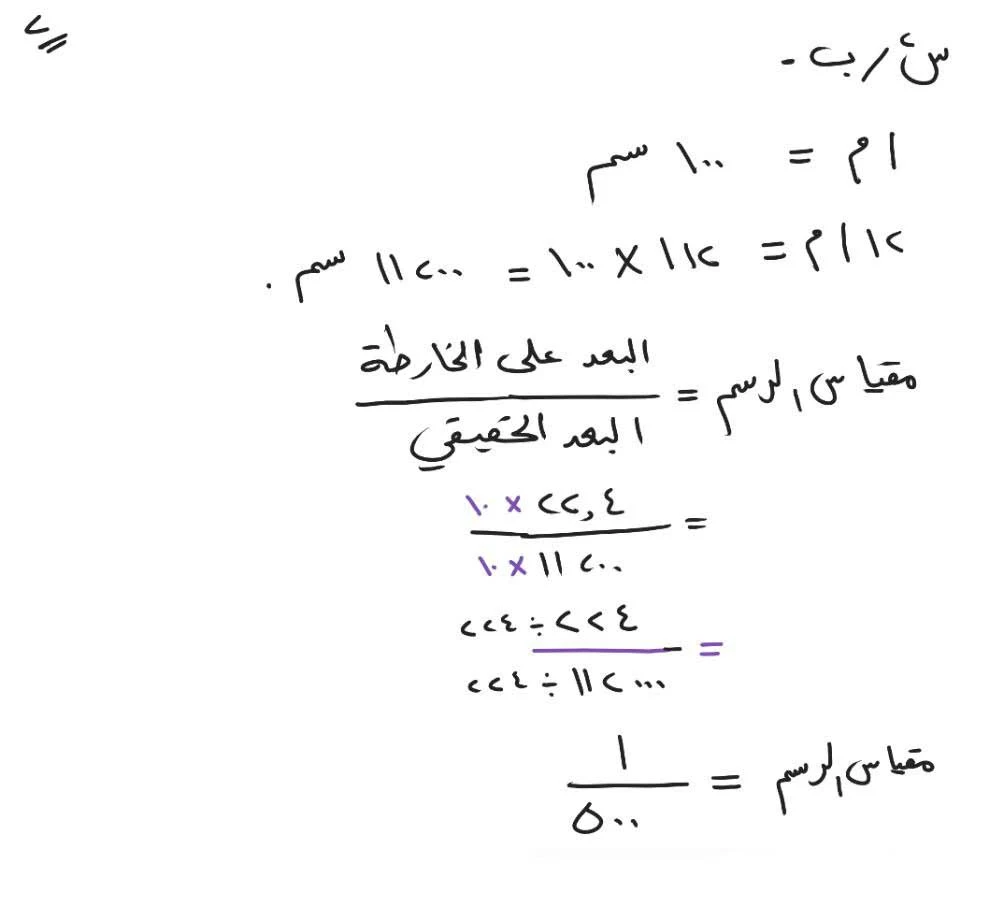 ٢
س٢/ب -
١ م = ١٠٠ سم
١١٢ م = ١١٢ × ١٠٠ = ١١٢٠٠ سم .
مقياس الرسم = البعد على الخارطة
البعد الحقيقي
= ٢٢,٤ × ١٠
١١٢٠٠ × ١٠
= ٢٢٤ ÷ ٢٢٤
١١٢٠٠٠ ÷ ٢٢٤
مقياس الرسم = ١
٥٠٠